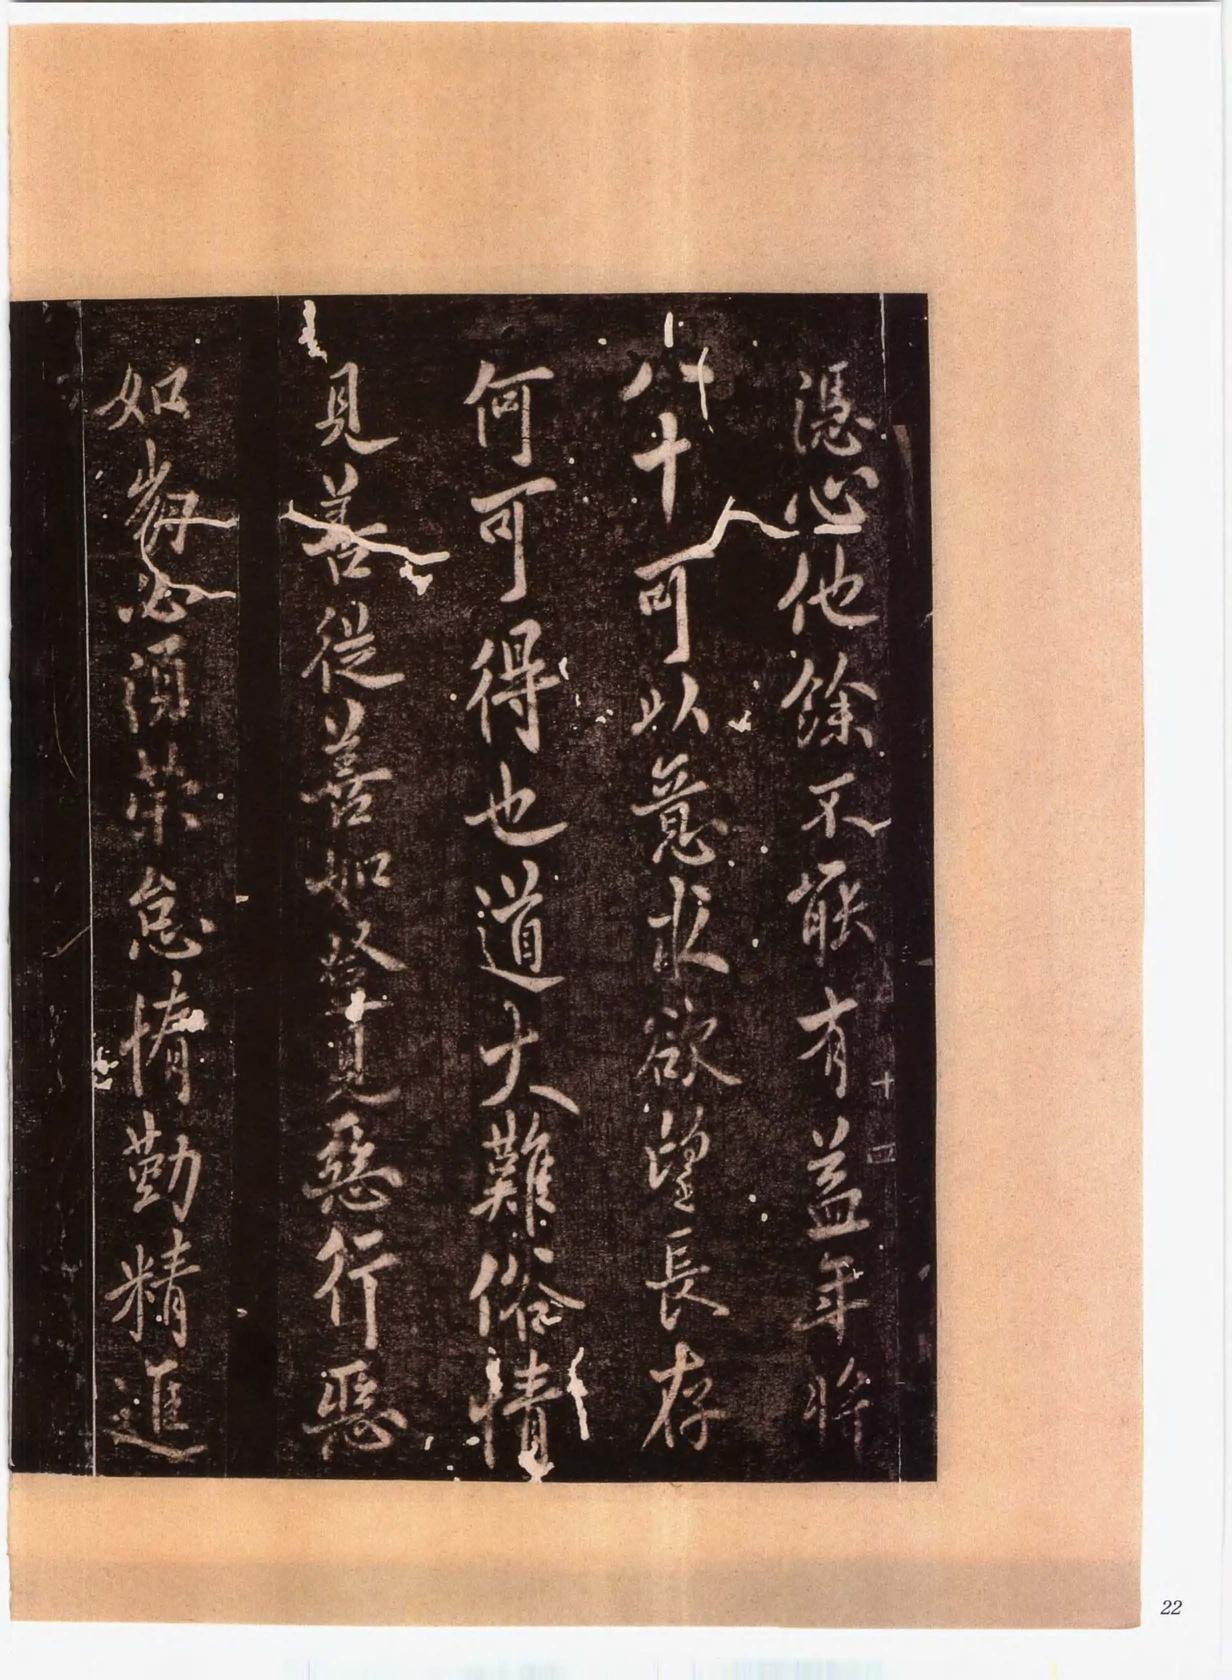 慿心他餘不能有益年將
八十可以意求欲望長存
何可得也道大難俗情
見善從善如登見惡行惡
如崩必須策怠惰勤精進
十四
22